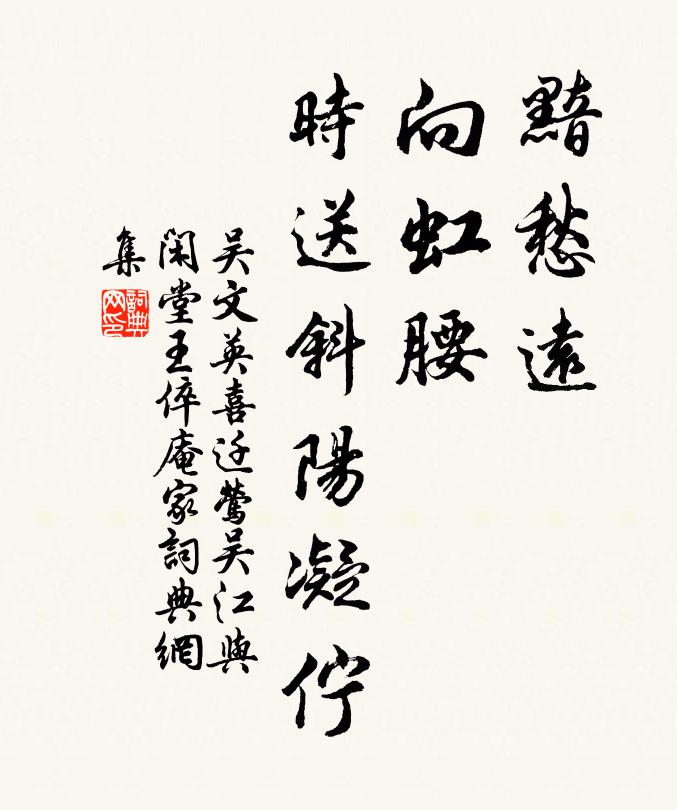 黯愁遠
向虹腰
時送斜陽凝佇
吴文英喜迁鶯吴江與
閑堂王倅庵家詞典網
集
詞典网印